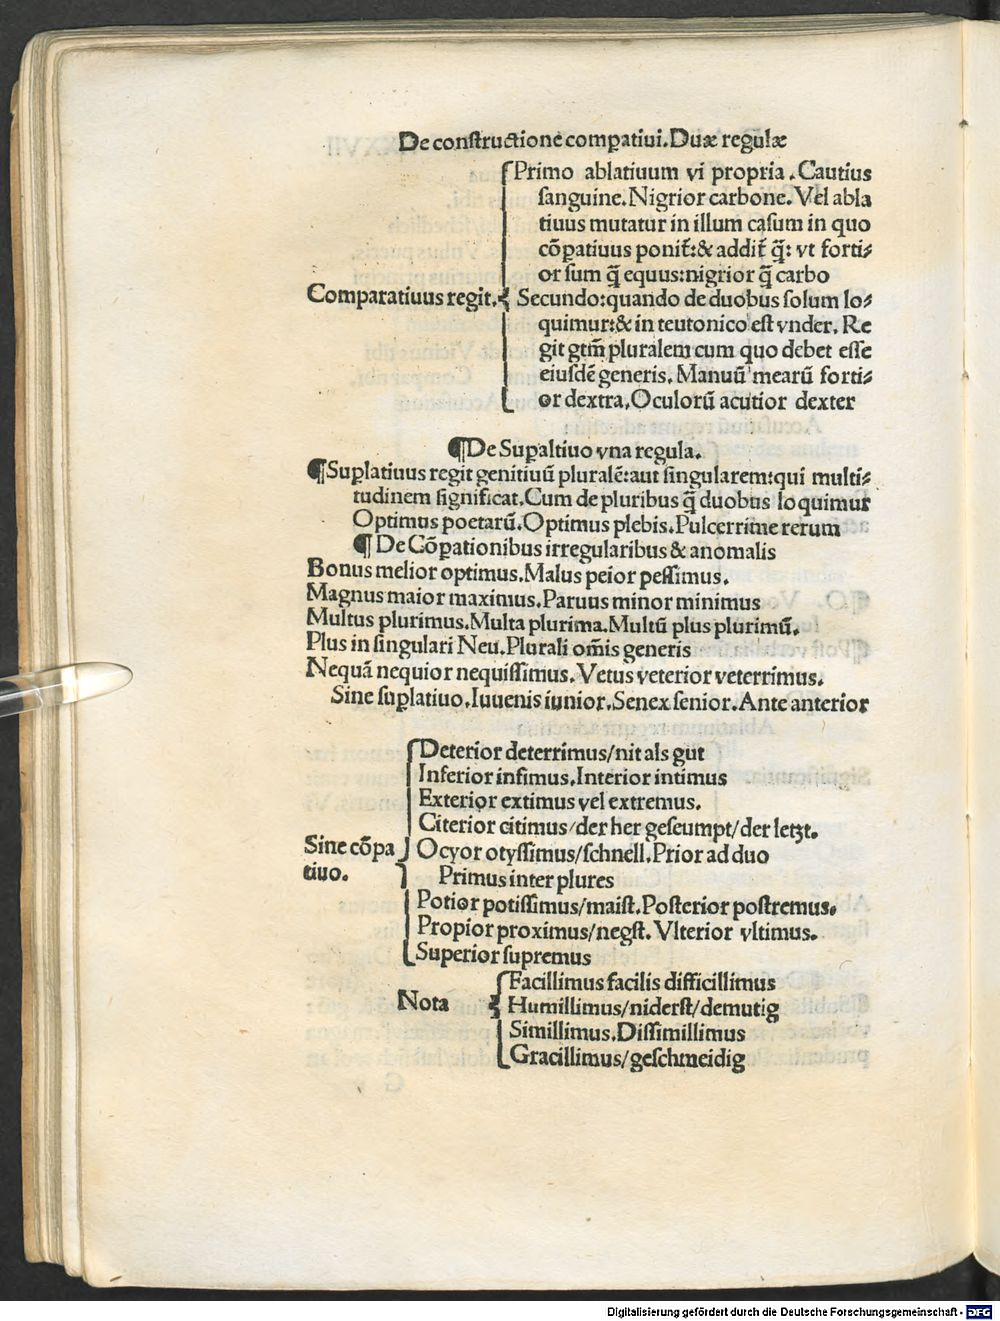 De constructione comꝑatiui. Duæ regulæ
Primo ablatiuum vi propria. Cautius
sanguine. Nigrior carbone. Vel abla
tiuus mutatur in illum casum in quo
cōꝑatiuus ponit̃: & addit̃ q̃: vt forti⸗
or sum q̃ equus: nigrior q̃ carbo
Comparatiuus regit. Secundo: quando de duobus solum lo⸗
quimur: & in teutonico est vnder. Re
git gtm̃ pluralem cum quo debet esse
eiusdē generis. Manuū mearū forti⸗
or dextra. Oculorū acutior dexter
¶ De Suꝑaltiuo vna regula.
¶ Suꝑlatiuus regit genitiuū pluralē: aut singularem: qui multi⸗
tudinem significat. Cum de pluribus q̃ duobus loquimur
Optimus poetarū. Optimus plebis. Pulcerrime rerum
¶ De Cōꝑationibus irregularibus & anomalis
Bonus melior optimus. Malus peior pessimus.
Magnus maior maximus. Paruus minor minimus
Multus plurimus. Multa plurima. Multū plus plurimū.
Plus in singulari Neu. Plurali om̃is generis
Nequā nequior nequissimus. Vetus veterior veterrimus.
Sine suꝑlatiuo. Iuuenis iunior. Senex senior. Ante anterior
Deterior deterrimus/nit als gut
Inferior infimus. Interior intimus
Exterior extimus vel extremus.
Citerior citimus/der her geseumpt/der letzt.
Sine cōpa Ocyor otyssimus/schnell. Prior ad duo
tiuo. Primus inter plures
Potior potissimus/maist. Posterior postremus.
Propior proximus/negst. Vlterior vltimus.
Superior supremus
Facillimus facilis difficillimus
Nota Humillimus/niderst/demutig
Simillimus. Dissimillimus
Gracillimus/geschmeidig
Digitalisierung gefördert durch die Deutsche Forschungsgemeinschaft - DFG